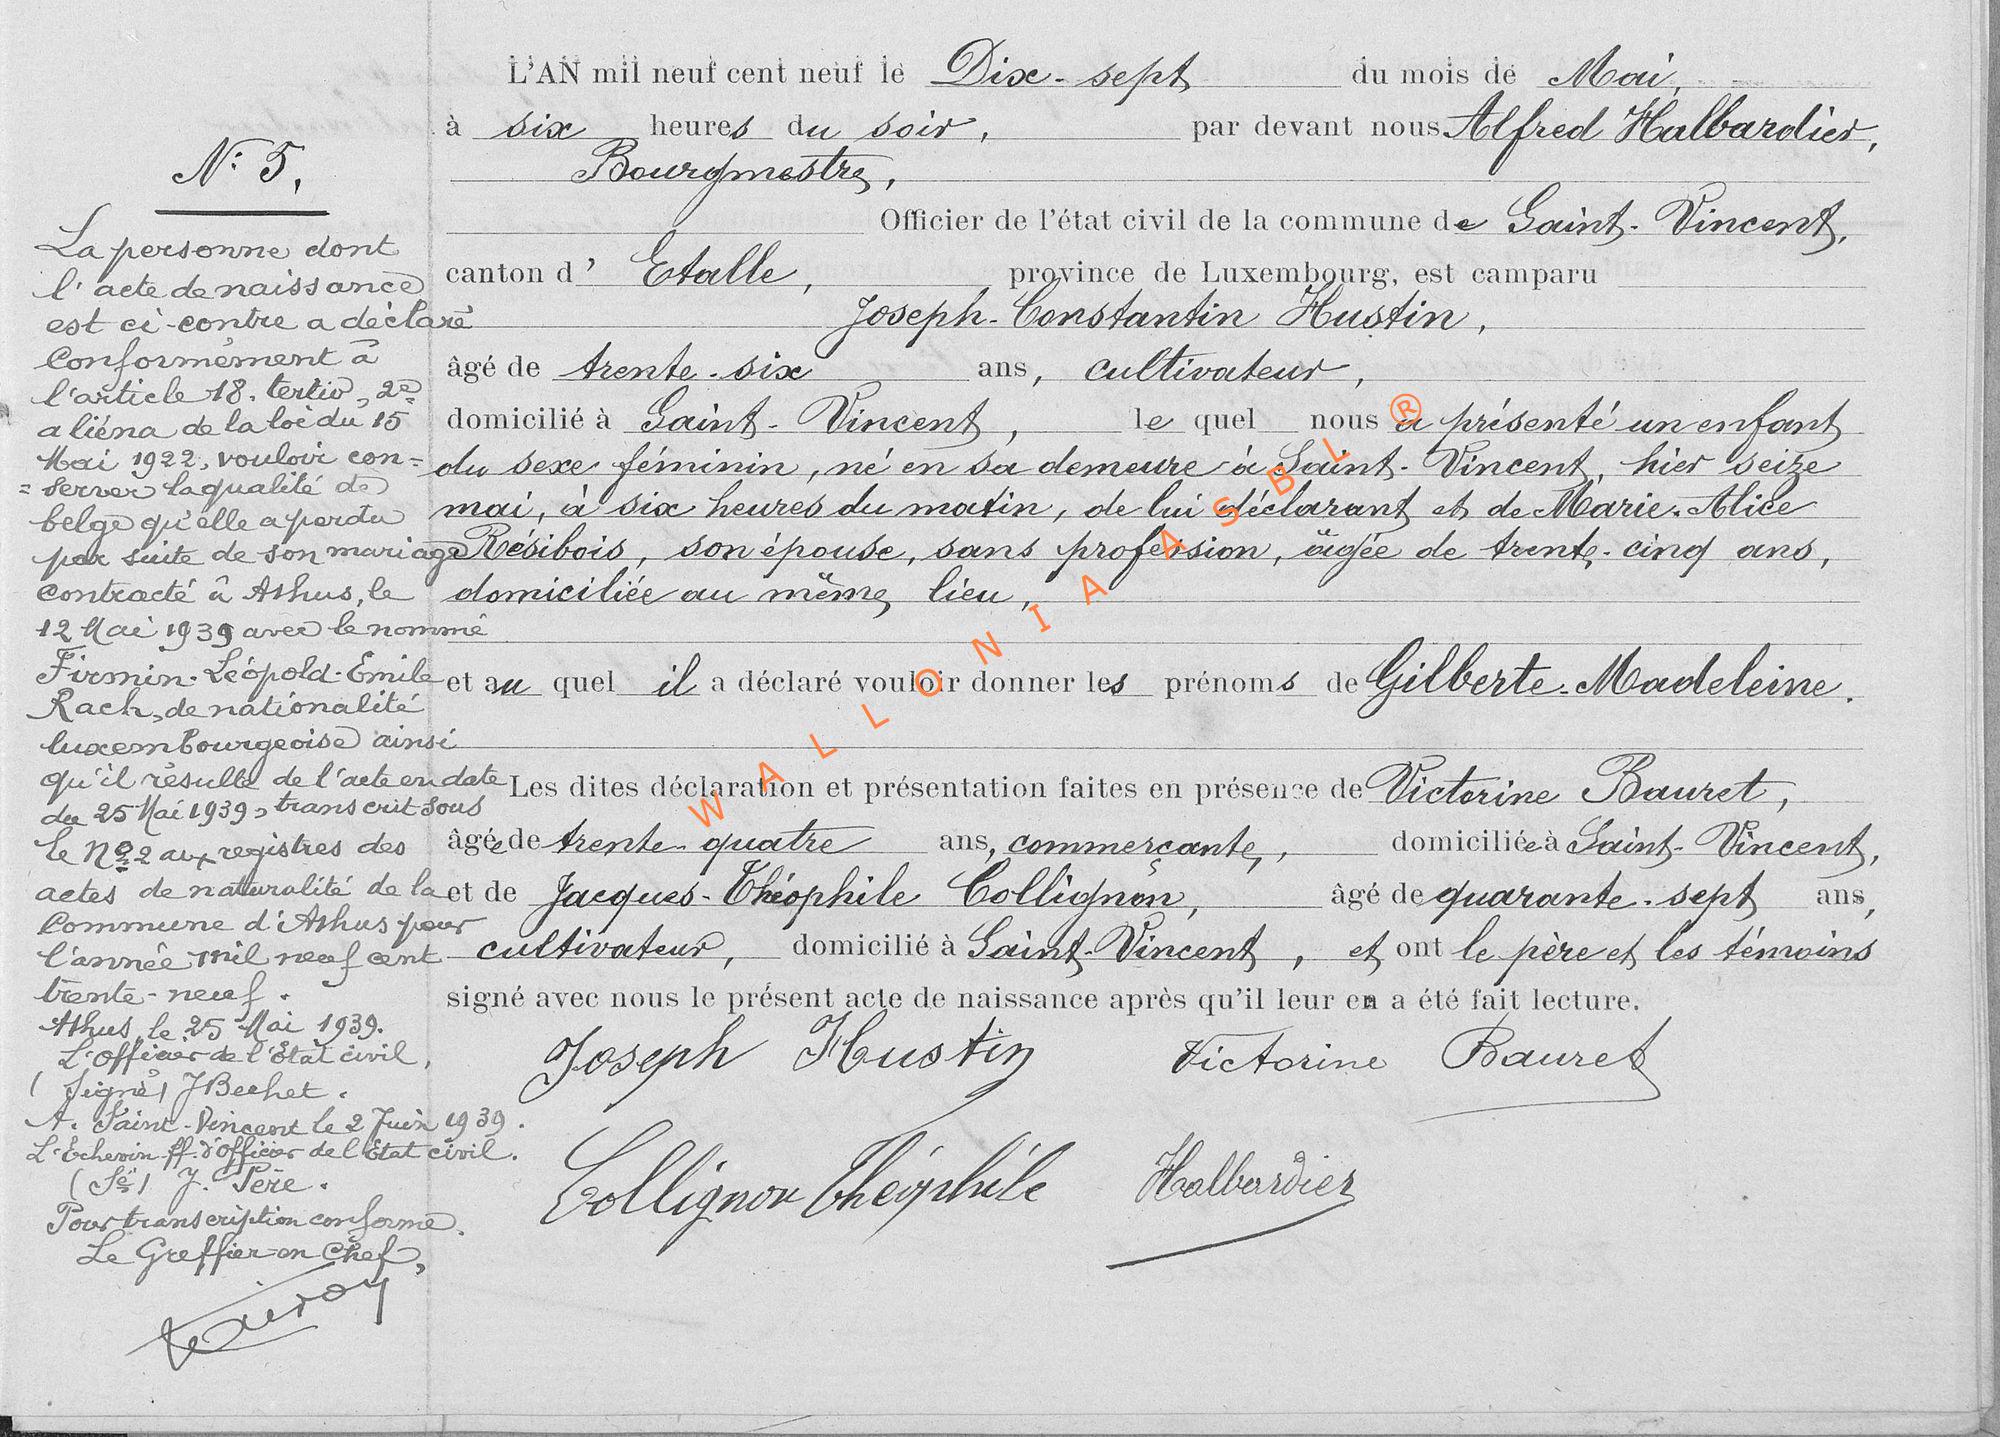 N° 5,
La personne dont
l'acte de naissance
est ci-contre a déclaré
conformément à
l'article 18. tertio, 2e
aliéna de la loi du 15
Mai 1922, vouloir con=
=server la qualité de
belge qu'elle a perdu
par suite de son mariage
contracté à Athus, le
12 Mai 1939 avec le nommé
Firmin-Léopold-Emile
Rach, de nationalité
luxembourgeoise ainsi
qu'il résulte de l'acte en date
du 25 Mai 1939, transcrit sous
le No 2 aux registres des
actes de naturalité de la
Commune d'Athus pour
l'année mil neuf cent
trente-neuf.
Athus, le 25 Mai 1939.
L'officier de l'Etat civil,
(signé) J Bechet.
A. Saint-Vincent le 2 Juin 1939.
L'Echevin ff. d'officier de l'Etat civil.
(Sé) J. Père.
Pour transcription conforme.
Le Greffier en Chef,
L'AN mil neuf cent neuf le Dix-sept du mois de Mai,
à six heures du soir, par devant nous Alfred Halbardier,
Bourgmestre,
Officier de l'état civil de la commune de Saint-Vincent,
canton d' Etalle, province de Luxembourg, est camparu
Joseph-Constantin Hustin,
âgé de trente-six ans, cultivateur,
domicilié à Saint-Vincent, le quel nous a présenté un enfant
du sexe féminin, né en sa demeure à Saint-Vincent, hier seize
mai, à six heures du matin, de lui déclarant et de Marie-Alice
Résibois, son épouse, sans profession, âgée de trente-cinq ans,
domiciliée au même lieu,
et au quel il a déclaré vouloir donner les prénoms de Gilberte-Madeleine.
Les dites déclaration et présentation faites en présence de Victorine Bauret,
âgée de trente-quatre ans, commerçante, domiciliée à Saint-Vincent,
et de Jacques-Théophile Collignon, âgé de quarante-sept ans,
cultivateur, domicilié à Saint-Vincent, et ont le père et les témoins
signé avec nous le présent acte de naissance après qu'il leur en a été fait lecture.
Joseph Hustin Victorine Bauret
Collignon Théophile Halbardier
WALLONIA ASBL ®